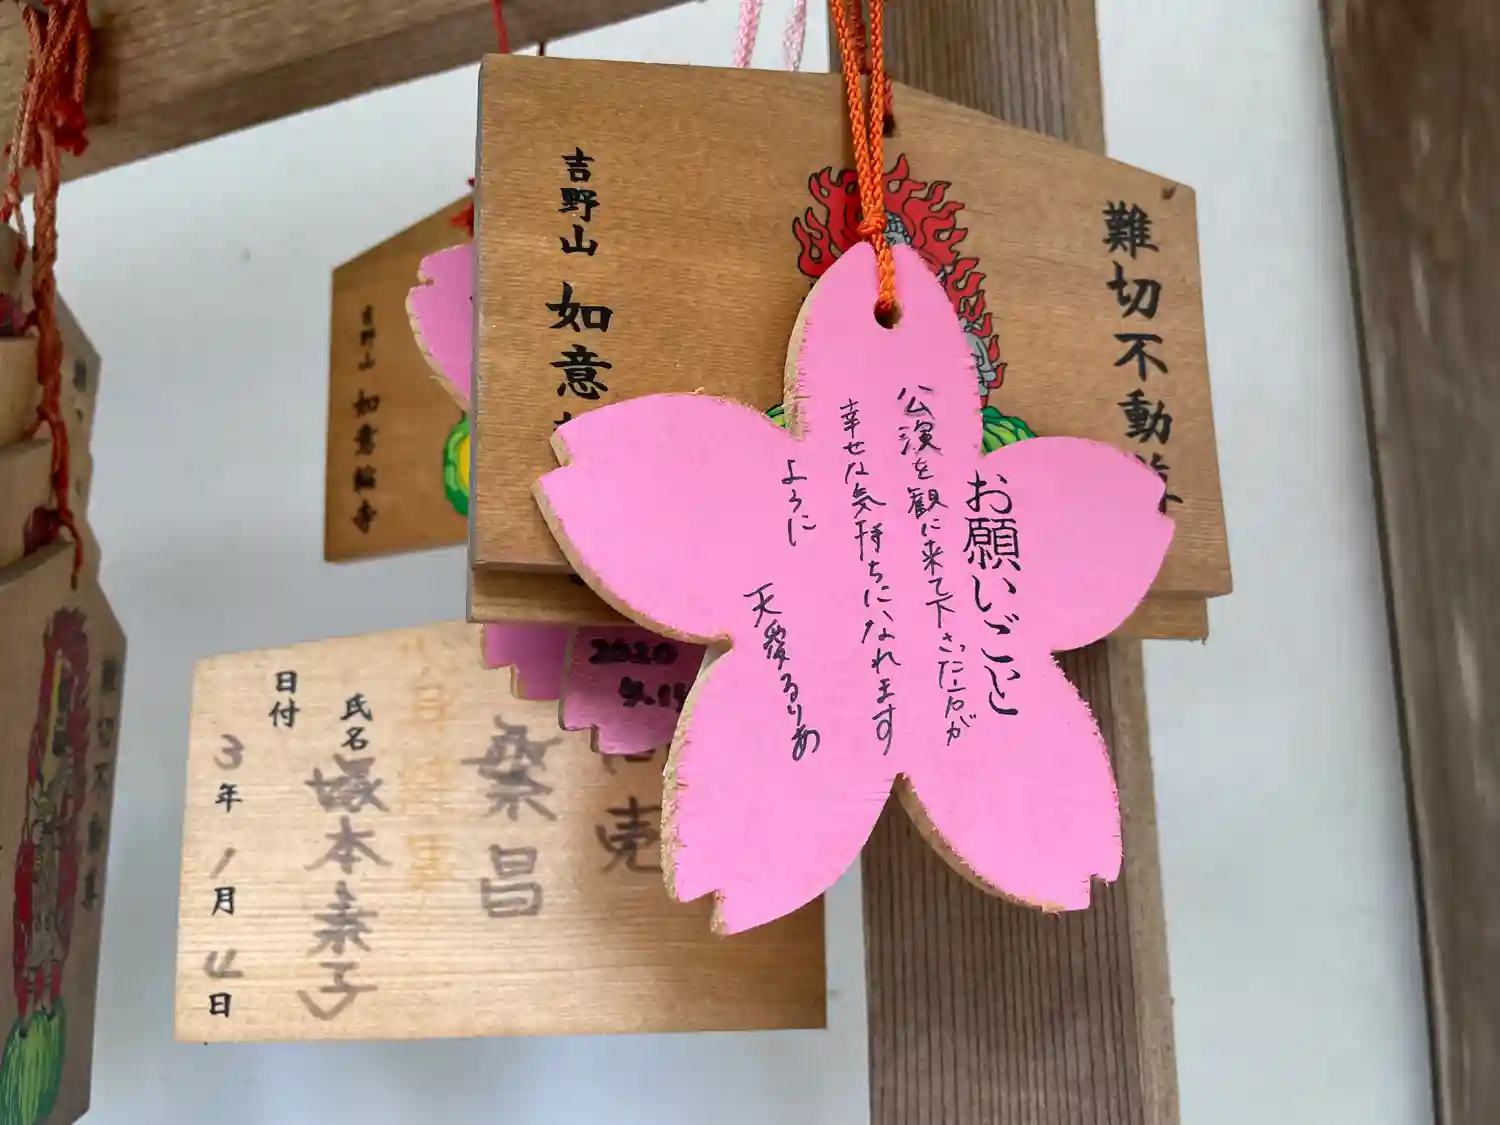 お願いごと
公演を観に来て下さった方が
幸せな気持ちになれます
ように
天愛るりあ
難切不動
吉野山 如意
吉野山 如意輪寺
2020
桑昌
氏名 塚本素子
日付 3年1月4日